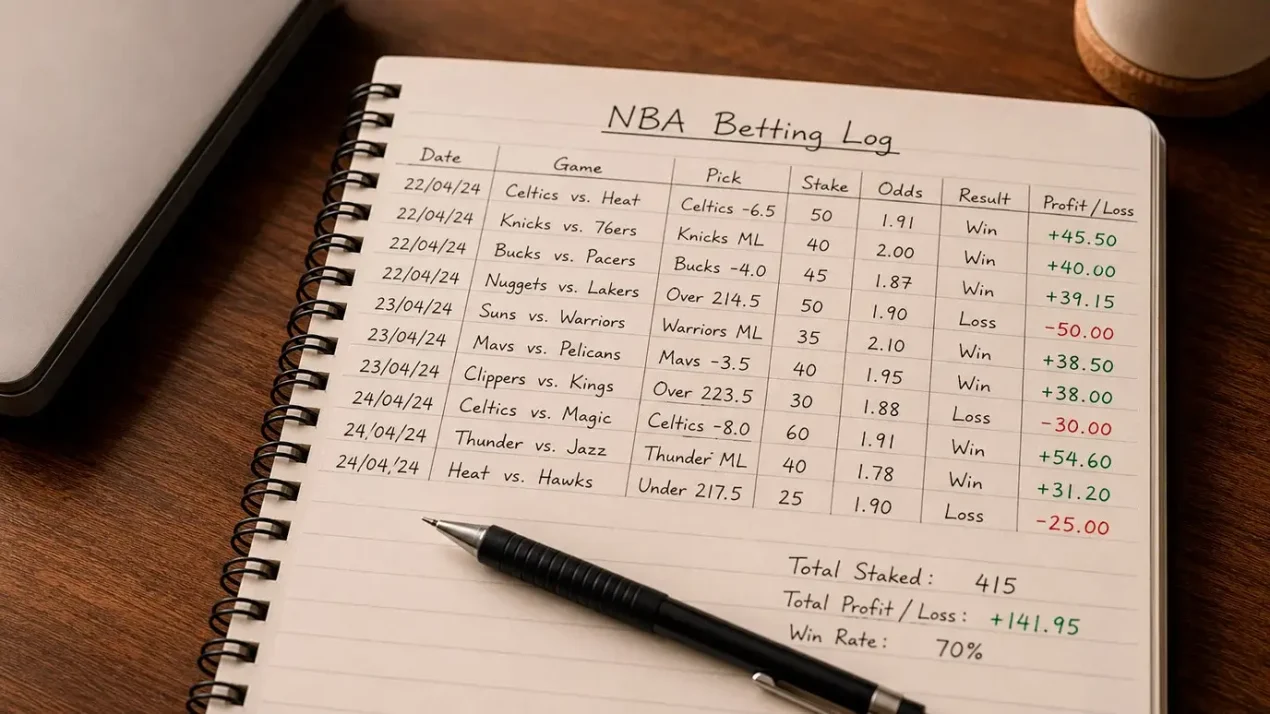 NBA Betting Log
Date Game Pick Stake Odds Result Profit/Loss
22/04/24 Celtics vs. Heat Celtics -6.5 50 1.91 Win +45.50
22/04/24 Knicks vs. 76ers Knicks ML 40 2.00 Win +40.00
22/04/24 Bucks vs. Pacers Bucks -4.0 45 1.87 Win +39.15
22/04/24 Nuggets vs. Lakers Over 214.5 50 1.90 Loss -50.00
23/04/24 Suns vs. Warriors Warriors ML 35 2.10 Win +38.50
23/04/24 Mavs vs. Pelicans Mavs -3.5 40 1.95 Win +38.00
23/04/24 Clippers vs. Kings Over 223.5 30 1.88 Loss -30.00
24/04/24 Celtics vs. Magic Celtics -8.0 60 1.91 Win +54.60
24/04/24 Thunder vs. Jazz Thunder ML 40 1.78 Win +31.20
24/04/24 Heat vs. Hawks Under 217.5 25 1.90 Loss -25.00
Total Staked: 415
Total Profit/Loss: +141.95
Win Rate: 70%